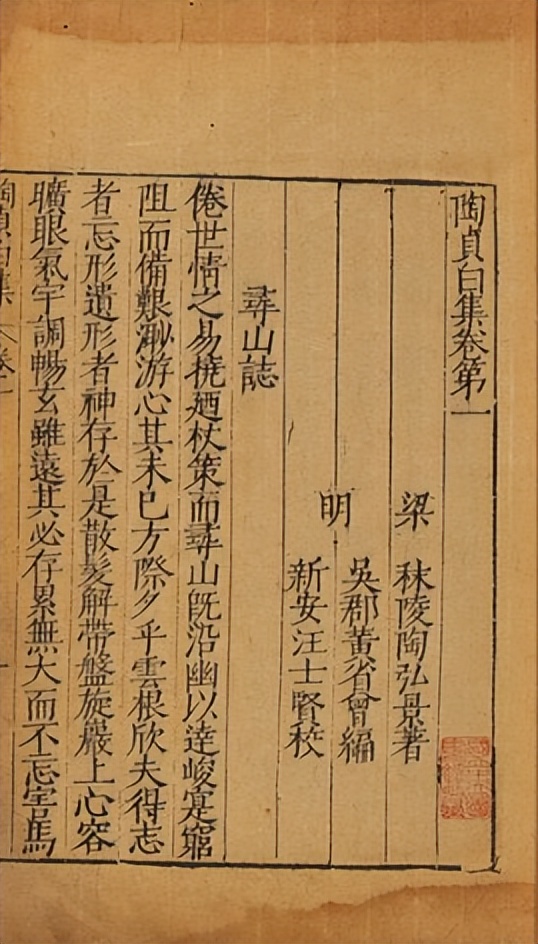 陶貞白集卷第一
梁 秣陵陶弘景著
明 吳郡黃省曾編
新安汪士賢校
尋山誌
倦世情之易撓廼杖策而尋山旣沿幽以達峻寔窮
阻而備艱渺游心其未已方際夕乎雲根欣夫得志
者忘形遺形者神存於是散髮解帶盤旋巖上心容
曠眼氣宇調暢玄雖遠其必存累無大而不忘害馬
陶貞白集 卷一